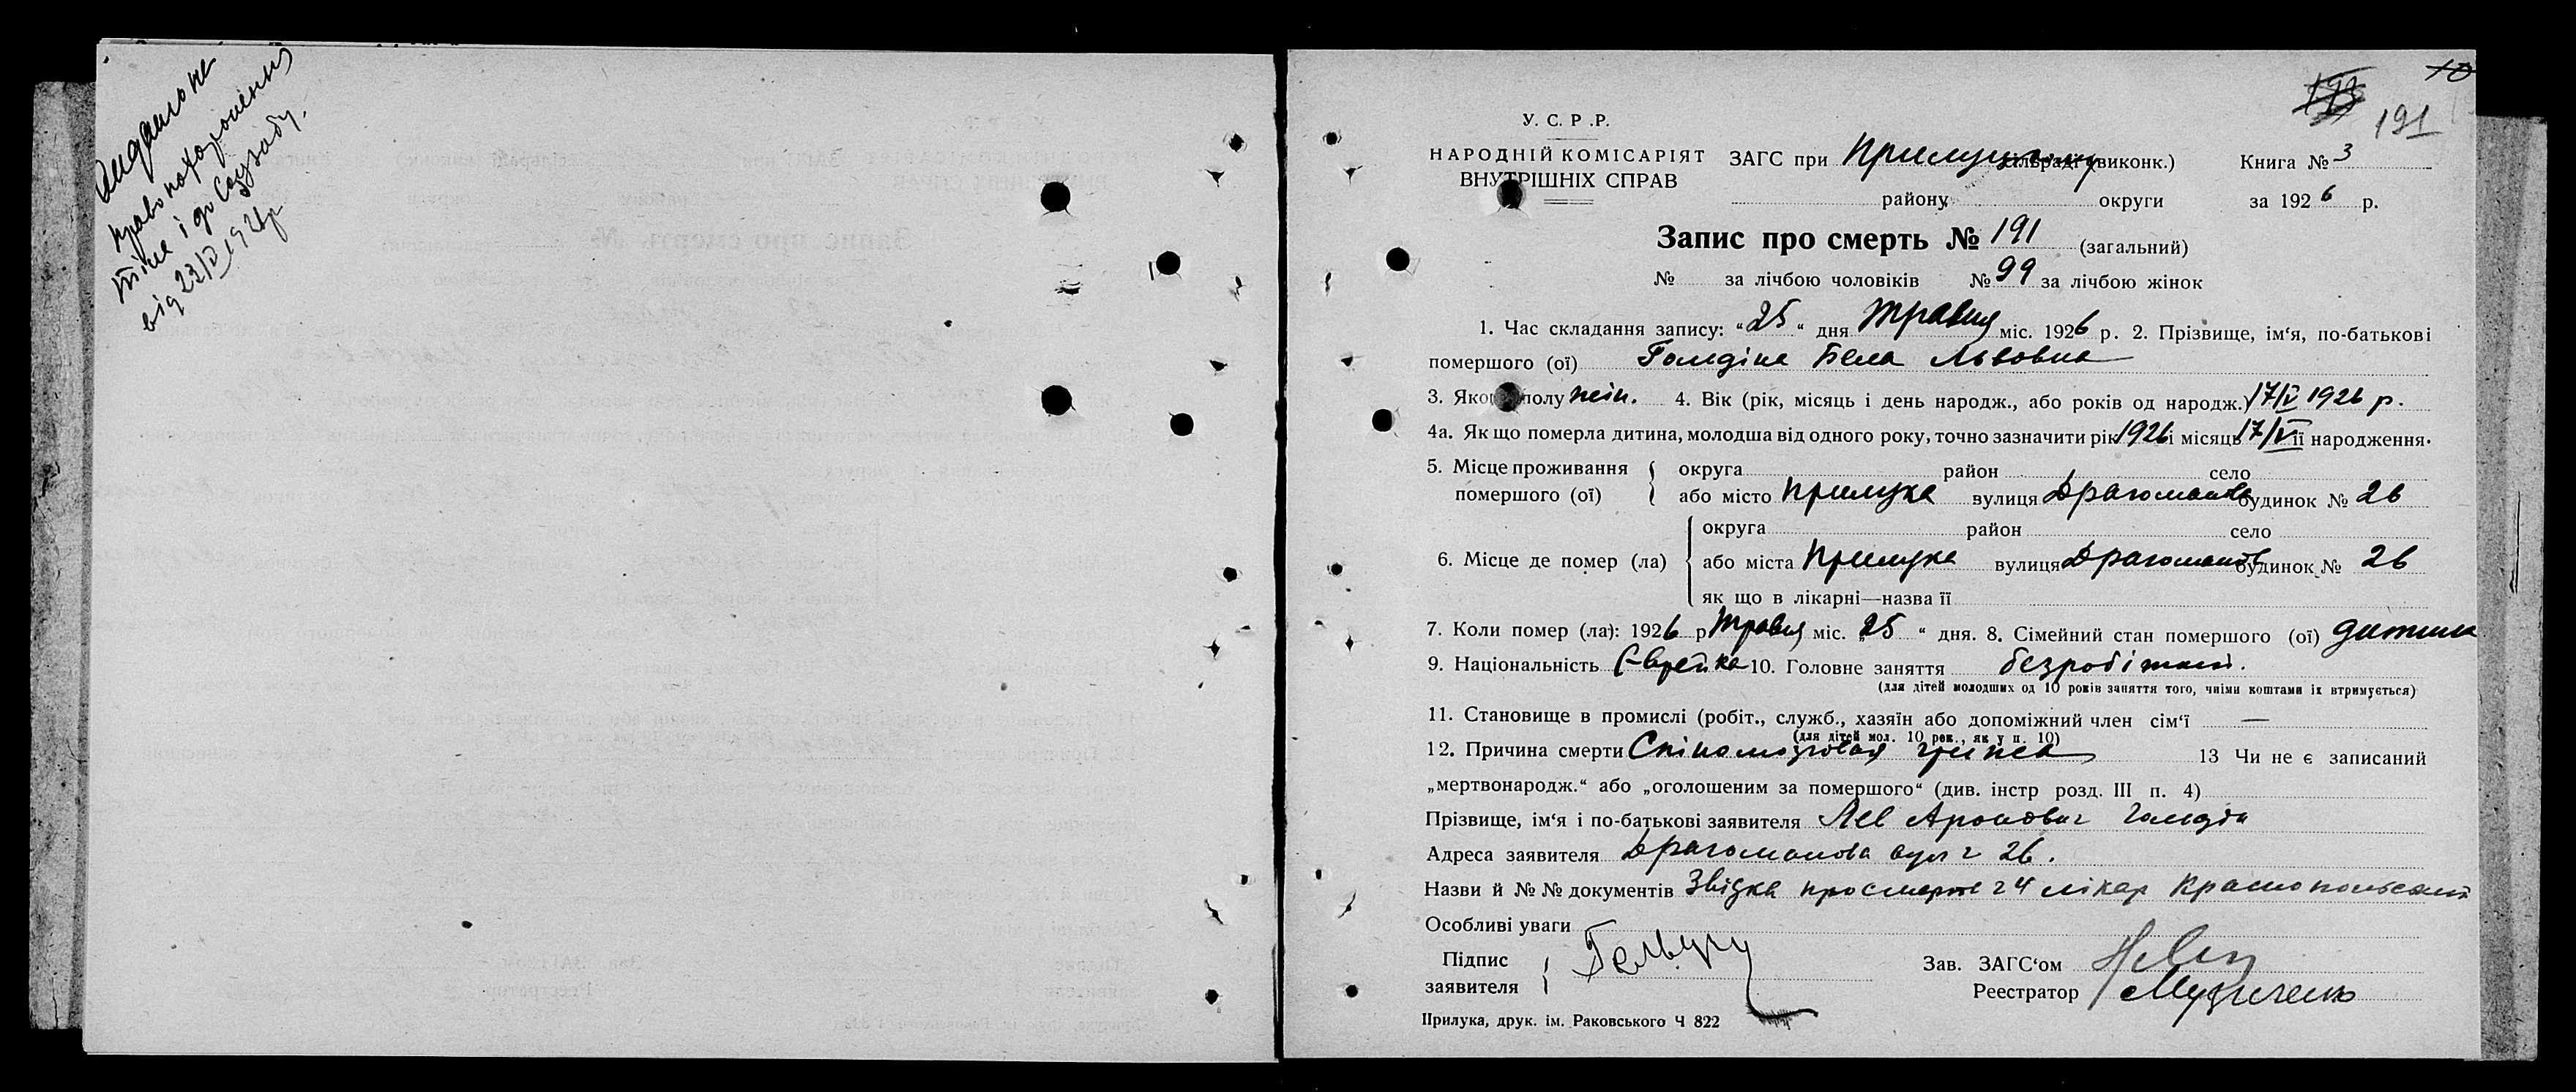 Видано на
право похорошення
тіла і до Соцзабу.
від 23/V 1926 р
10
191
У. С. Р. Р.
НАРОДНІЙ КОМІСАРІЯТ
ВНУТРІШНІХ СПРАВ
ЗАГС при Прилуцькому сільраді (виконк.) Книга № 3
району округи за 1926 р.
Запис про смерть № 191 (загальний)
№ за лічбою чоловіків № 99 за лічбою жінок
1. Час складання запису: “25“ дня Травня міс. 1926 р. 2. Прізвище, ім‘я, по-батькові
помершого (ої) Голидіна Бела Львовна
3. Якого полу жін. 4. Вік (рік, місяць і день народж., або років од народж.) 17/V 1926 р.
4а. Як що померла дитина, молодша від одного року, точно зазначити рік 1926 і місяць 17/V її народження.
5. Місце проживання помершого (ої) { округа район село
або місто Прилука вулиця Драгоманова будинок № 26
6. Місце де помер (ла) { округа район село
або міста Прилука вулиця Драгоманова будинок № 26
як що в лікарні—назва її
7. Коли помер (ла): 1926 р Травня міс. „25“ дня. 8. Сімейний стан помершого (ої) дитина
9. Національність Єврейка 10. Головне заняття безробітний.
(для дітей молодших од 10 років заняття того, чиїми коштами їх втримується)
11. Становище в промислі (робіт., служб., хазяїн або допоміжний член сім‘ї —
(для дітей мол. 10 рок., як у п. 10)
12. Причина смерти Спіномозговая грижа 13 Чи не є записаний
„мертвонародж.“ або „оголошеним за помершого“ (див. інстр розд. III п. 4)
Прізвище, ім‘я і по-батькові заявителя Лев Аронович
Адреса заявителя Драгоманова вул 26.
Назви й №№ документів Звідка про смерть 24 лікар Краснопольский
Особливі уваги
Підпис заявителя {
Зав. ЗАГС‘ом
Реестратор Музиченко
Прилука, друк. ім. Раковського Ч 822